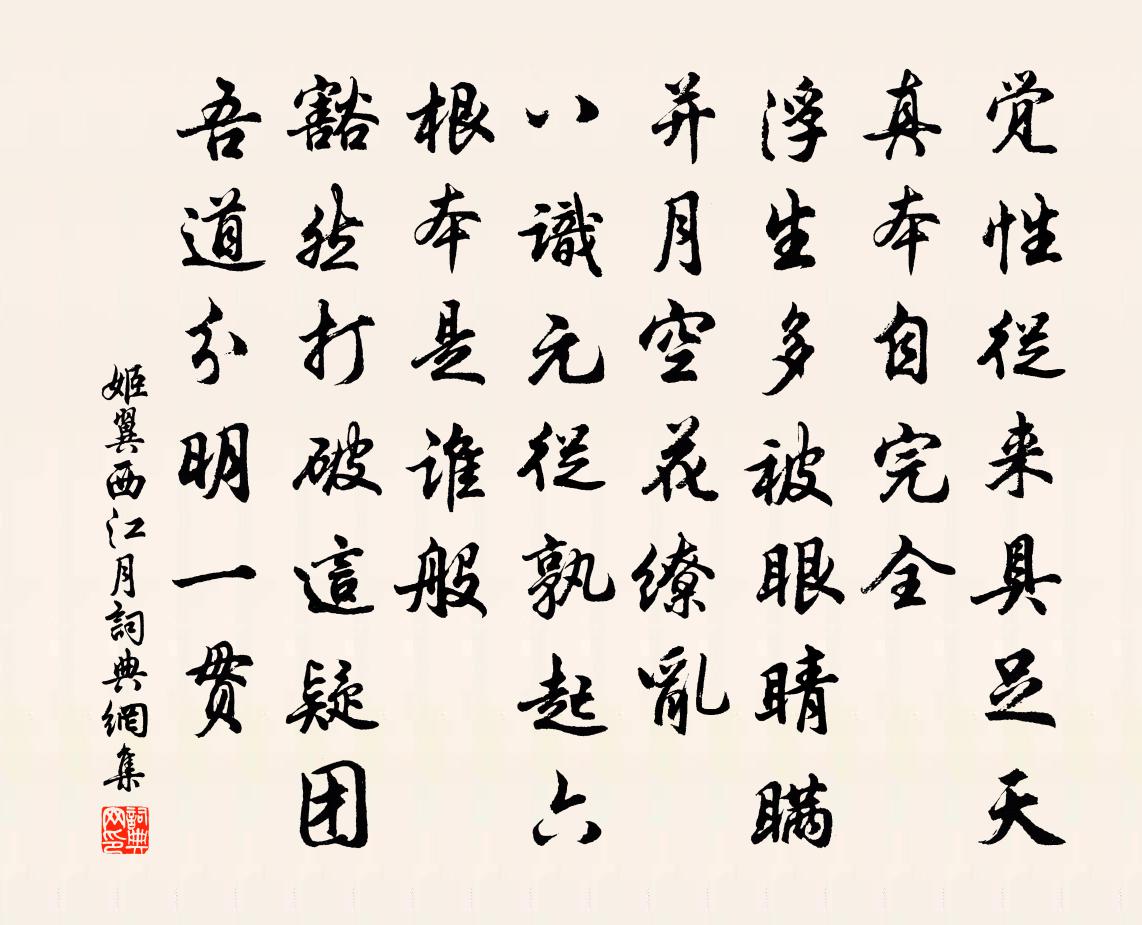 觉性從来具足天
真本自完全
浮生多被眼睛瞞
并月空花缭亂
八識元從孰起六
根本是谁般
豁然打破這疑团
吾道分明一贯
姬翼西江月詞典網集
詞典网印